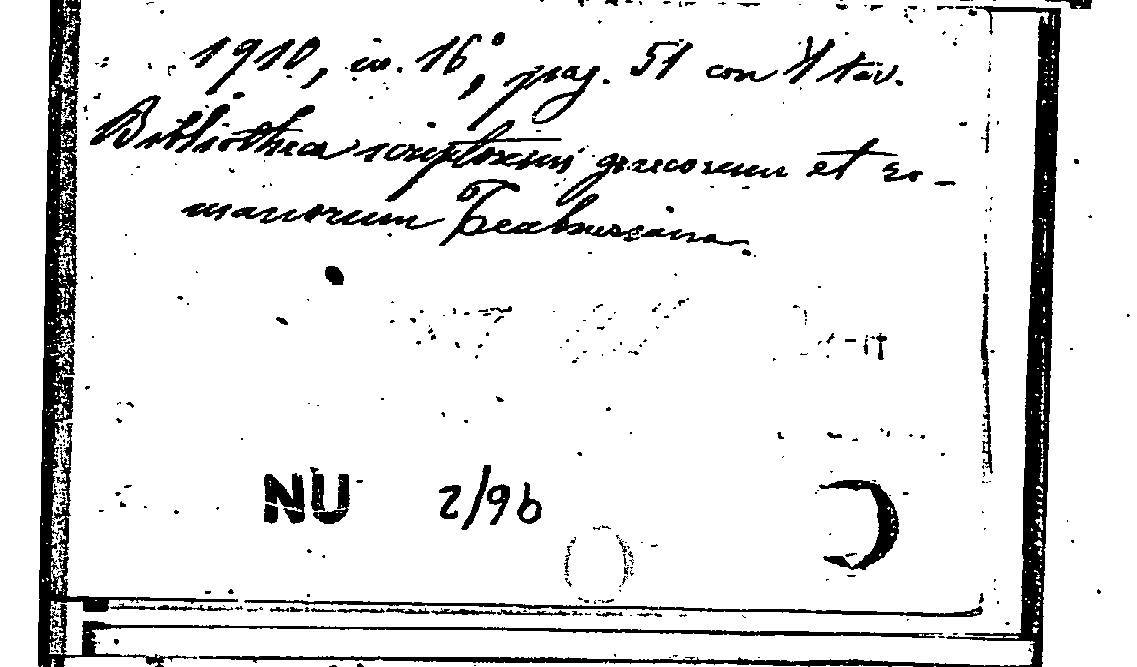 1910, in 16°, pag. 51 con 4 tav.
Bibliotheca scriptorum graecorum et ro-
manorum Teubneriana.
NU 2/96